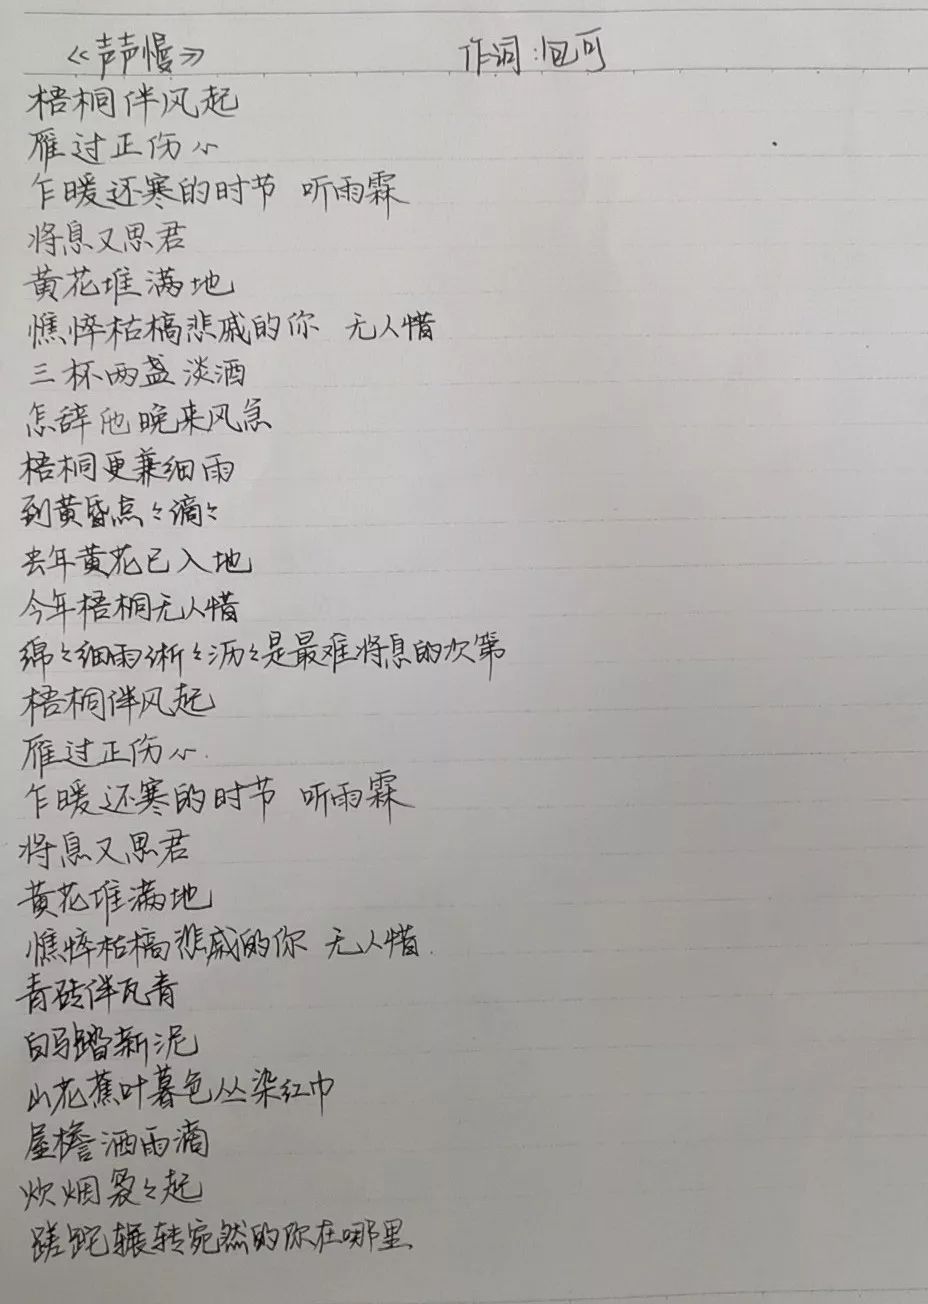 《声声慢》 作词:回可
梧桐伴风起
雁过正伤心
乍暖还寒的时节 听雨霖
将息又思君
黄花堆满地
憔悴枯槁悲戚的你 无人惜
三杯两盏淡酒
怎辞他晚来风急
梧桐更兼细雨
到黄昏点々滴々
去年黄花已入地
今年梧桐无人惜
绵々细雨淅々沥々是最难将息的次第
梧桐伴风起
雁过正伤心.
乍暖还寒的时节 听雨霖
将息又思君
黄花堆满地
憔悴枯槁悲戚的你 无人惜.
青砖伴瓦青
白马踏新泥
山花蕉叶暮色丛染红巾
屋檐洒雨滴
炊烟袅々起
蹉跎辗转宛然的你在哪里